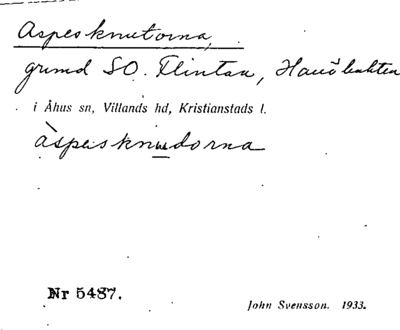 Aspesknutorna,
grund SO. Flintan, Hanöbukten
i Åhus sn, Villands hd, Kristianstads l.
àspesknudorna
Nr 5487.
John Svensson. 1933.